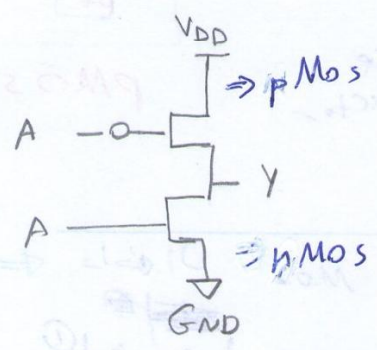 VDD
⇒ pMos
A
Y
A
⇒ nMOS
GND